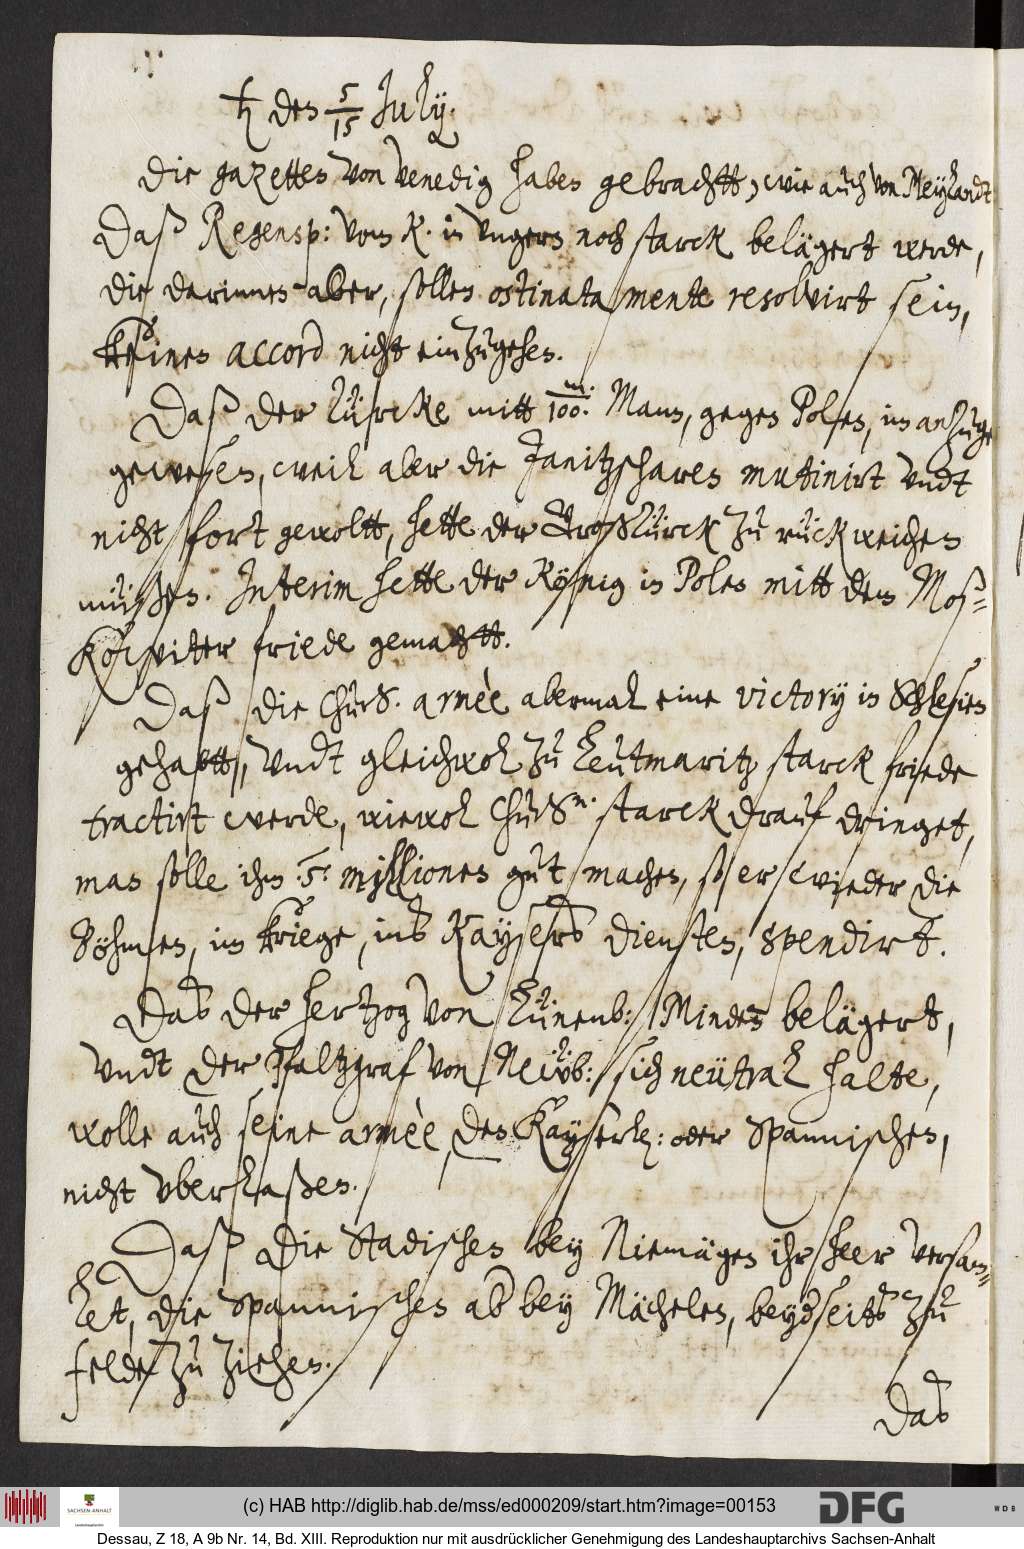 ♄ den 5/15 July.
Die gazetten von Venedig haben gebrachtt, wie auch von Meylandt
Daß Regensp: vom K. in Ungern noch starck belägert werde,
die darinnen aber, sollen ostinatamente resolvirt sein,
keinen accord nicht einzugehen.
Daß der Türcke mitt 100m. Mann, gegen Polen, im anzuge
gewesen, weil aber die Janitzscharen mutinirt undt
nicht fort gewoltt, hette der GroßTürck zu rück weichen
müßen. Interim hette der König in Polen mitt dem Moß=
kowiter friede gemachtt.
Daß die ChurS. armèe abermal eine victory in Schlesien
gehabtt, undt gleichwol zu Leutmaritz starck friede
tractirt werde, wiewol ChurSn. starck drauf dringet,
man solle ihm .5. millionen gut machen, so er wieder die
Böhmen, im kriege, ins Kaysers diensten, spendirt.
Das der Hertzog von Lünenb: Minden belägert,
undt der Pfaltzgraf von Neüb: sich neütral halte,
wolle auch seine armèe, den Kayserl: oder Spannischen,
nicht uberlaßen.
Daß die Stadischen bey Niemägen ihr heer versam=
let, die Spannischen ab bey Mächelen, beydseits zu
felde zu ziehen.
Das
(c) HAB http://diglib.hab.de/mss/ed000209/start.htm?image=00153
SACHSEN-ANHALT
DFG
WDB
Dessau, Z 18, A 9b Nr. 14, Bd. XIII. Reproduktion nur mit ausdrücklicher Genehmigung des Landeshauptarchivs Sachsen-Anhalt